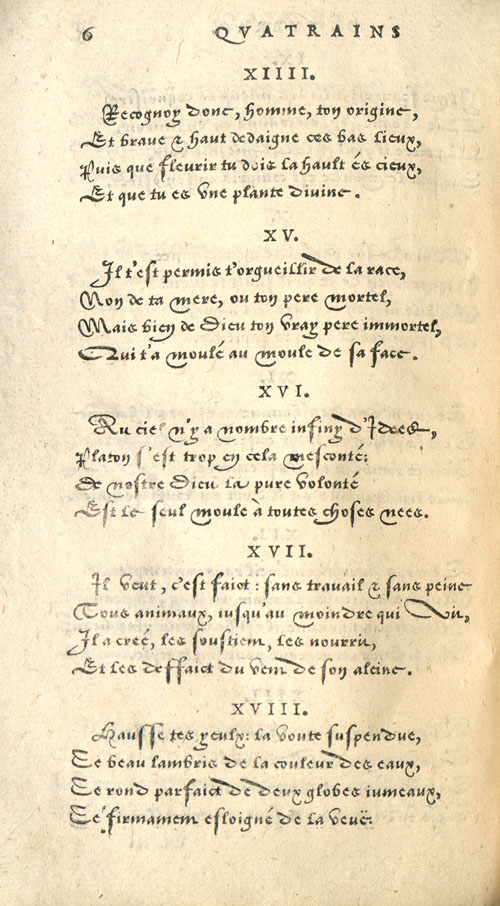 6 QVATRAINS
XIIII.
Recognoy donc, homme, ton origine,
Et brave & haut dedaigne ces bas lieux,
Puis que fleurir tu dois la hault és cieux,
Et que tu es vne plante divine.
XV.
Il t'est permis t'orgueillir de la race,
Non de ta mere, ou ton pere mortel,
Mais bien de Dieu ton vray pere immortel,
Qui t'a moulé au moule de sa face.
XVI.
Au ciel n'y a nombre infiny d'Idees,
Platon s'est trop en cela mesconté:
De nostre Dieu la pure volonté
Est le seul moule à toutes choses nees.
XVII.
Il veut, c'est faict: sans travail & sans peine
Tous animaux, iusqu'au moindre qui vit,
Il a creé, les soustient, les nourrit,
Et les deffaict du vent de son aleine.
XVIII.
Hausse tes yeulx: la voute suspendue,
Ce beau lambris de la couleur des eaux,
Ce rond parfaict de deux globes iumeaux,
Ce firmament esloigné de la veuë: